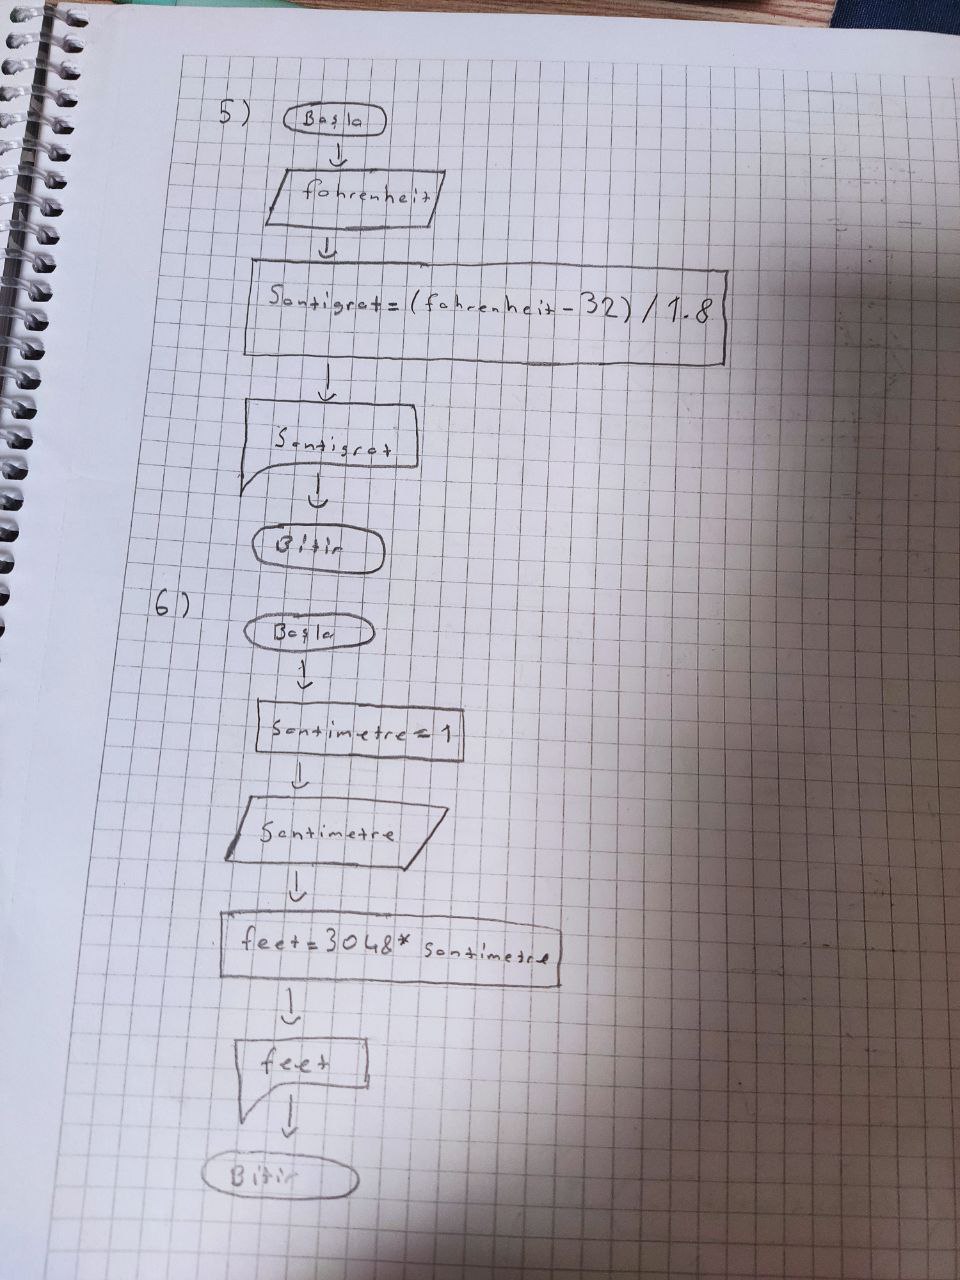 5)
Başla
fahrenheit
Santigrat = (fahrenheit - 32) / 1.8
Santigrat
Bitir
6)
Başla
Santimetre = 1
Santimetre
feet = 3048 * santimetre
feet
Bitir